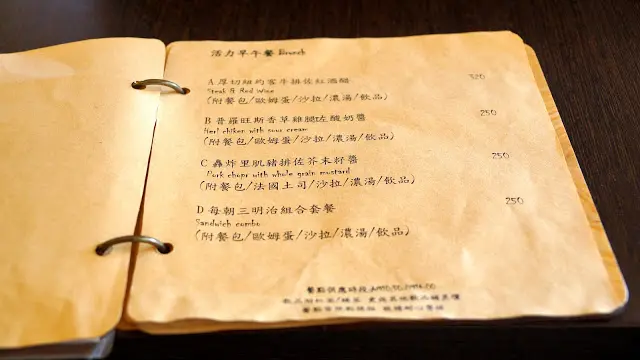 活力早午餐 Brunch
A 厚切紐約客牛排佐紅酒醋 320
Steak & Red Wine
(附餐包/歐姆蛋/沙拉/濃湯/飲品)
B 普羅旺斯香草雞腿佐酸奶醬 250
Herl chiken with sour cream
(附餐包/歐姆蛋/沙拉/濃湯/飲品)
C 轟炸里肌豬排佐芥末籽醬 250
Pork chopr with whole grain mustard
(附餐包/法國土司/沙拉/濃湯/飲品)
D 每朝三明治組合套餐 250
Sandwich combo
(附餐包/歐姆蛋/沙拉/濃湯/飲品)
餐點供應時段